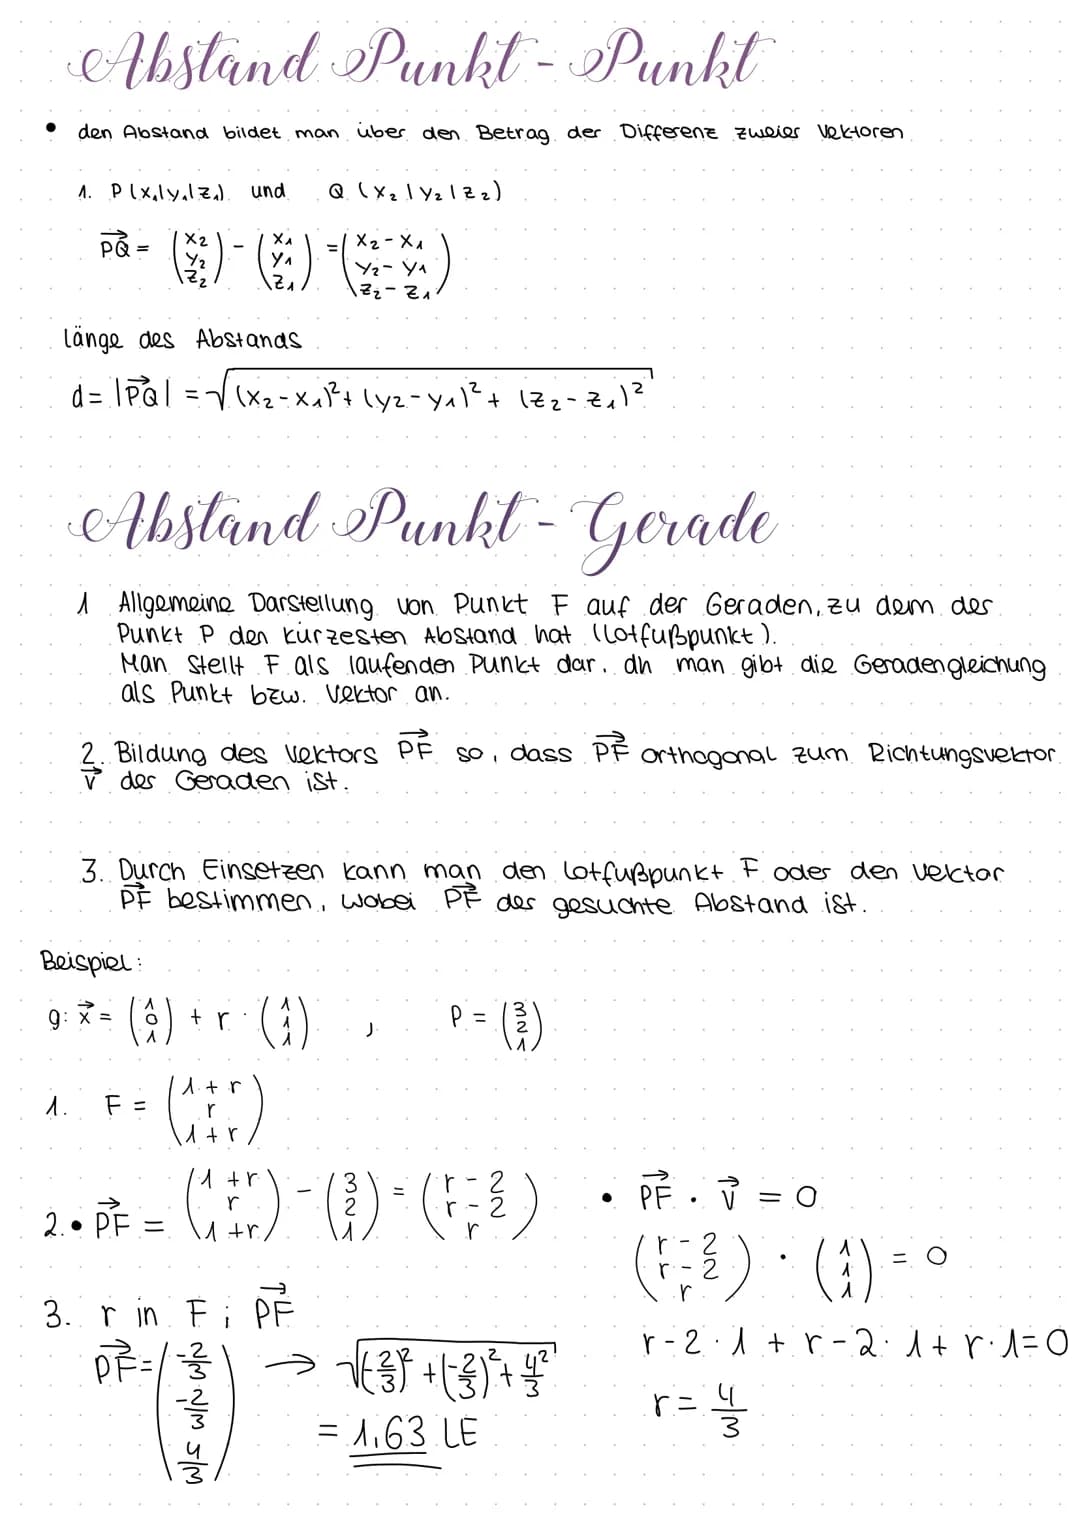 Abstand Punkt - Punkt
• den Abstand bildet man über den Betrag der Differenz zweier Vektoren
1. P(x₁|y₁|z₁) und Q (x₂|y₂|z₂)
PQ⃗ = (x₂ y₂ z₂) - (x₁ y₁ z₁) = (x₂-x₁ y₂-y₁ z₂-z₁)
Länge des Abstands
d = |PQ⃗| = √((x₂-x₁)² + (y₂-y₁)² + (z₂-z₁)²)
Abstand Punkt - Gerade
1 Allgemeine Darstellung von Punkt F auf der Geraden, zu dem der
Punkt P den kürzesten Abstand hat (Lotfußpunkt).
Man stellt F als laufenden Punkt dar, dh man gibt die Geradengleichung
als Punkt bzw. Vektor an.
2. Bildung des Vektors PF⃗ so, dass PF⃗ orthogonal zum Richtungsvektor
v⃗ der Geraden ist.
3. Durch Einsetzen kann man den Lotfußpunkt F oder den Vektor
PF⃗ bestimmen, wobei PF⃗ der gesuchte Abstand ist.
Beispiel:
g: x⃗ = (1 0 1) + r · (1 1 1) , P = (3 2 1)
1. F = (1+r r 1+r)
2. • PF⃗ = (1+r r 1+r) - (3 2 1) = (r-2 r-2 r)
• PF⃗ · v⃗ = 0
(r-2 r-2 r) · (1 1 1) = 0
r-2·1 + r-2·1 + r·1=0
r = 4/3
3. r in F ; PF⃗
PF⃗ = (-2/3 -2/3 4/3) → √((-2/3)² + (-2/3)² + 4/3²)
= 1,63 LE